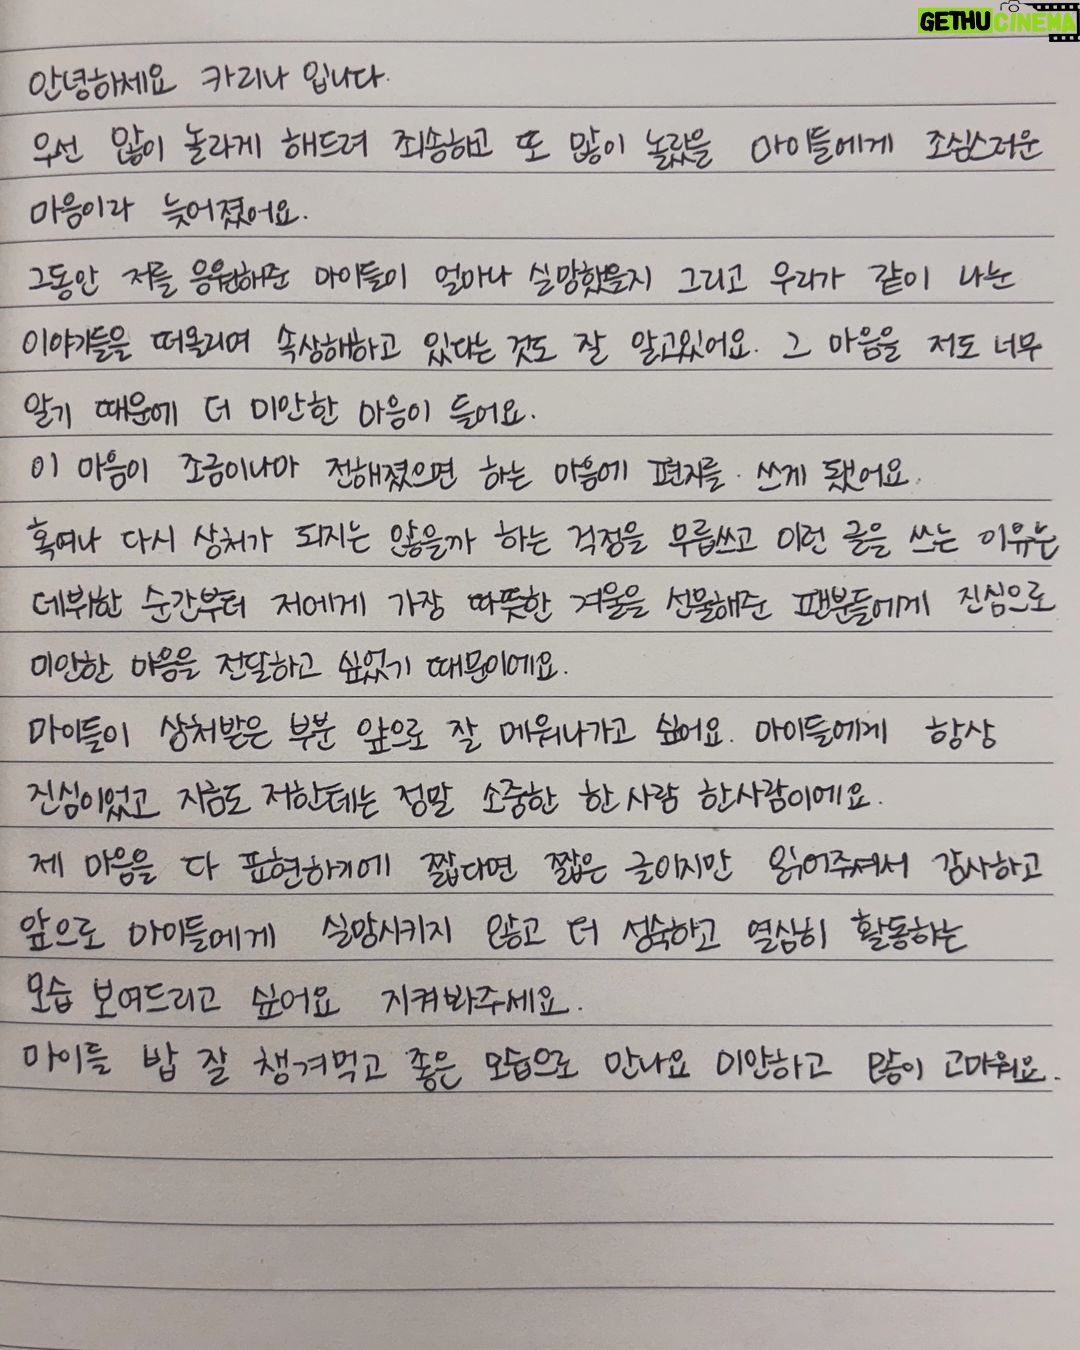 GETHU CINEMA
안녕하세요 카리나 입니다.
우선 많이 놀라게 해드려 죄송하고 또 많이 놀랐을 마이들에게 조심스러운
마음이라 늦어졌어요.
그동안 저를 응원해준 마이들이 얼마나 실망했을지 그리고 우리가 같이 나눈
이야기들을 떠올리며 속상해하고 있다는 것도 잘 알고있어요. 그 마음을 저도 너무
알기 때문에 더 미안한 마음이 들어요.
이 마음이 조금이나마 전해졌으면 하는 마음에 편지를 쓰게 됐어요.
혹여나 다시 상처가 되지는 않을까 하는 걱정을 무릅쓰고 이런 글을 쓰는 이유는
데뷔한 순간부터 저에게 가장 따뜻한 겨울을 선물해준 팬분들에게 진심으로
미안한 마음을 전달하고 싶었기 때문이에요.
마이들이 상처받은 부분 앞으로 잘 메워나가고 싶어요. 마이들에게 항상
진심이었고 지금도 저한테는 정말 소중한 한 사람 한사람이에요.
제 마음을 다 표현하기에 짧다면 짧은 글이지만 읽어주셔서 감사하고
앞으로 마이들에게 실망시키지 않고 더 성숙하고 열심히 활동하는
모습 보여드리고 싶어요 지켜봐주세요.
마이들 밥 잘 챙겨먹고 좋은 모습으로 만나요 미안하고 많이 고마워요.